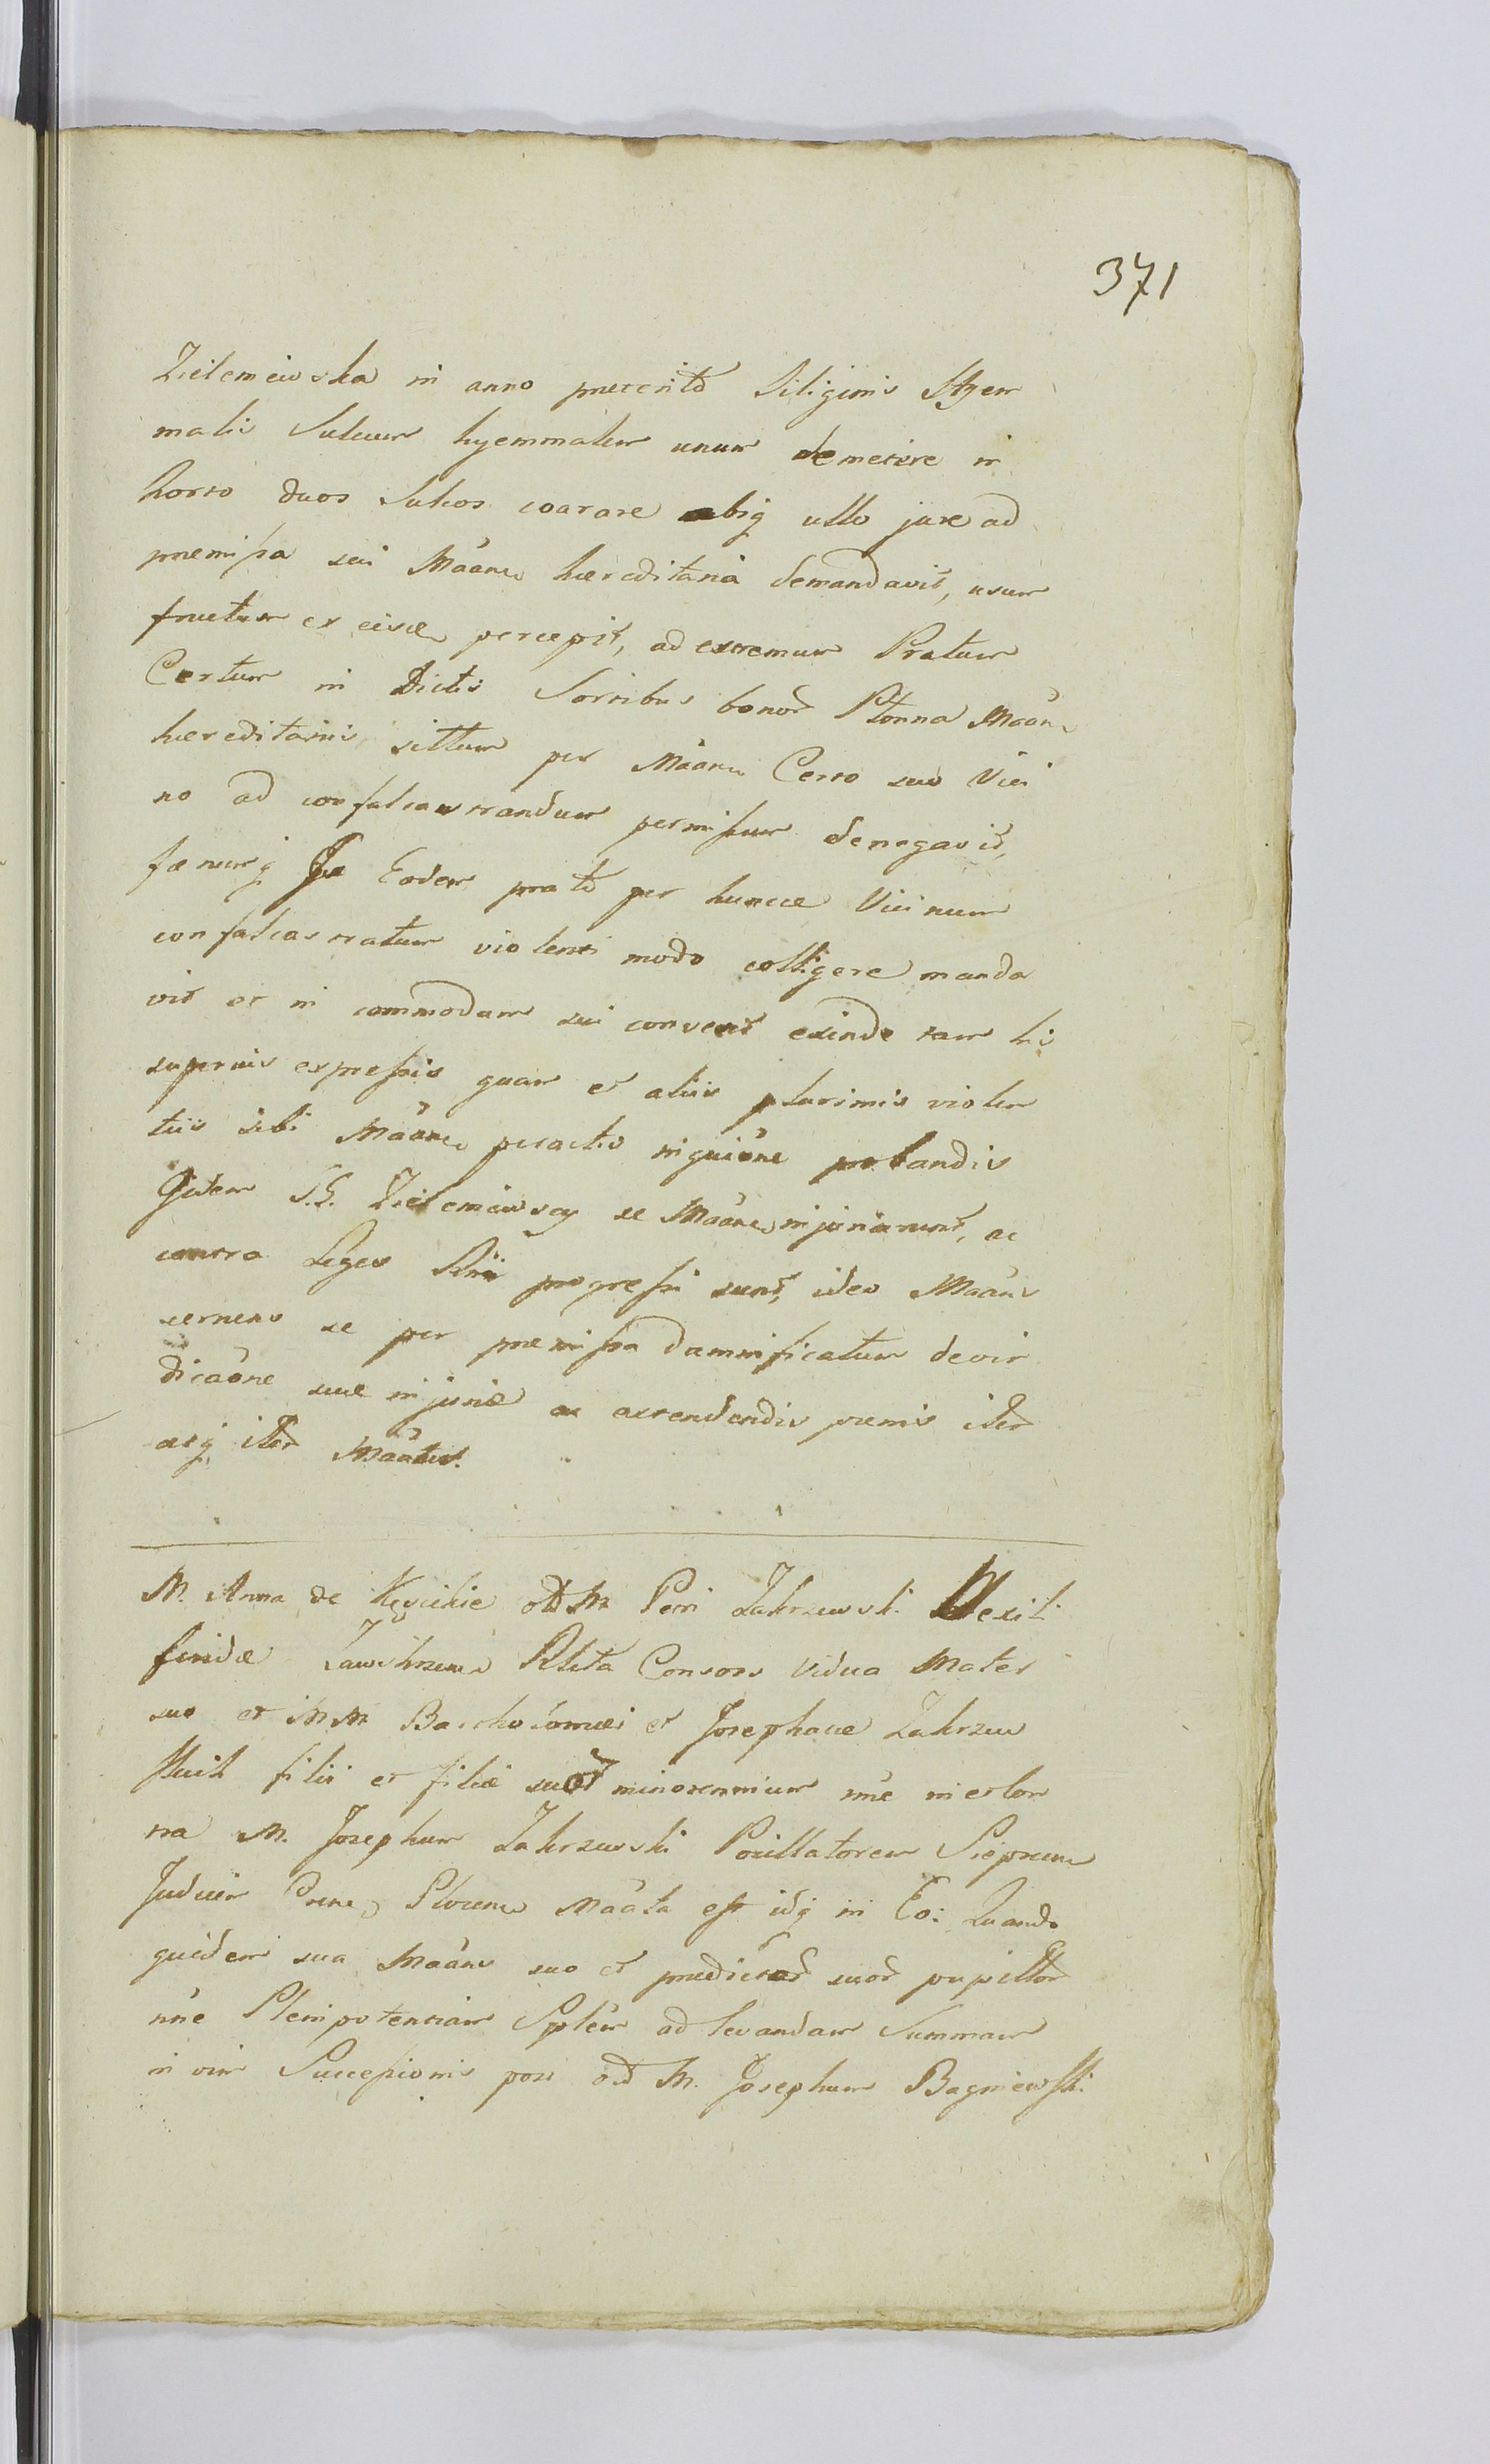 371
Zielemiewska in anno praeterito Siliginis Hyem
malis Sulcum hyemmalem unum demetere in
horto duos Sulcos coarare absq ullo jure ad
praemissa sui Maanes haereditaria demandavit, usum
fructum ex eisce percepit, ad extremum Pratum
Certum in Dictis Sortibus bonor Płonna Maans
haereditariis sittum per Maane Certo suo Vici
no ad confalcastrandum permissum denegavit,
faenumq Eodem prato per huncce Vicinum
confalcastratum violenti modo colligere manda
vit et in commodum sui convertit exinde tam his
superius expressis quam et aliis plurimis violen
tiis sibi Maane peractis inquisitione probandis
Iidem S.G. Zielemiewscy se Maane injuriarunt, ac
contra Leges Rni progressi sunt, ideo Maans
cernens se per praemissa damnificatum de vin
dicaone suae injuriae ac extendendis paenis iter
atq iter Maatur.
M. Anna de olim M. Petri Zakrzewski Vexil
feridae Relicta Consors Vidua Mater
suo et M M Bartholomaei et Josephatae Zakrzew
skich filii et filiae suor minorennium nne in et con
tra M. Josephum Zakrzewski Pocillatorem
Judicem Maata est idq in Eo: Quando
quidem sua Maans suo et praedictor suor pupillor
nne Plenipotentiam Splem ad levandam Summam
in vim Successionis post olim M. Josephum Bagniewski